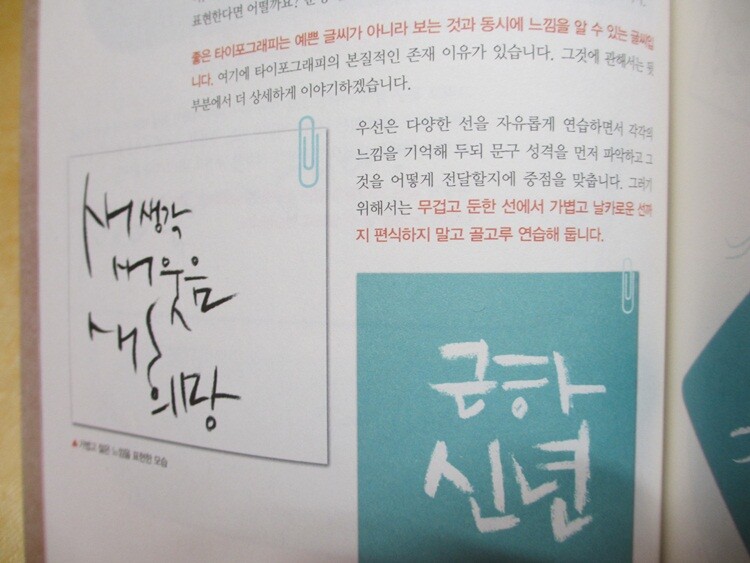 표현한다면 어떨까요?
좋은 타이포그래피는 예쁜 글씨가 아니라 보는 것과 동시에 느낌을 알 수 있는 글씨입
니다. 여기에 타이포그래피의 본질적인 존재 이유가 있습니다. 그것에 관해서는 뒷
부분에서 더 상세하게 이야기하겠습니다.
우선은 다양한 선을 자유롭게 연습하면서 각각의
느낌을 기억해 두되 문구 성격을 먼저 파악하고 그
것을 어떻게 전달할지에 중점을 맞춥니다. 그러기
위해서는 무겁고 둔한 선에서 가볍고 날카로운 선까
지 편식하지 말고 골고루 연습해 둡니다.
새 생각
새 웃음
새 날
희망
▲ 가볍고 젊은 느낌을 표현한 모습
근하
신년